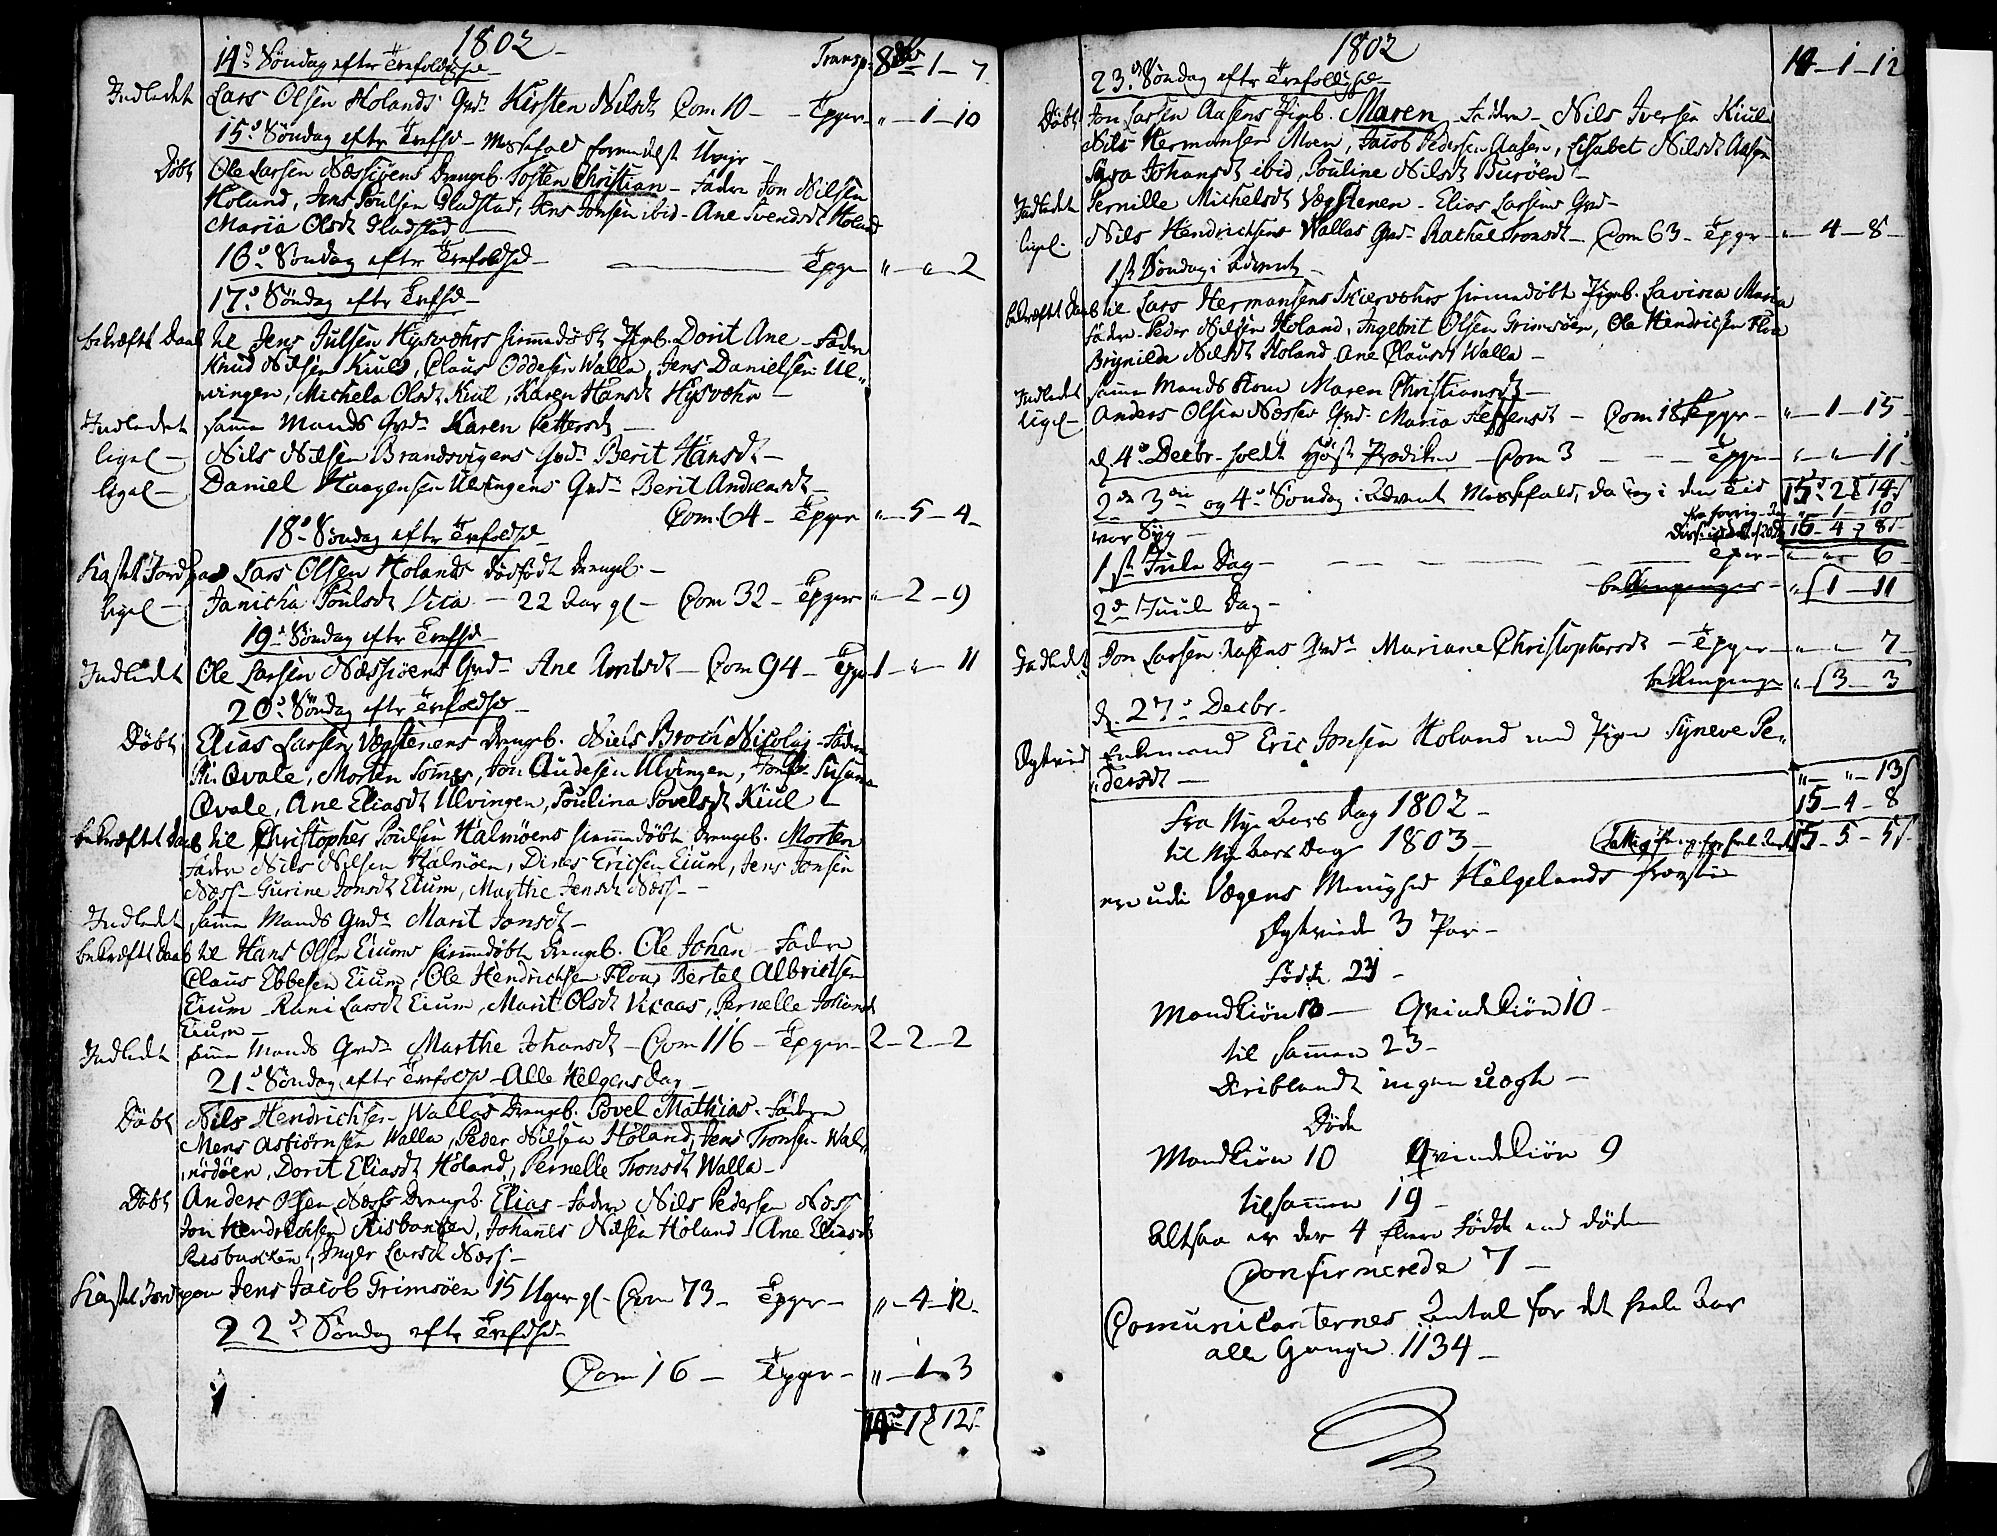 1802
14d Söndag efter Trefoldighd Transp. 8 1 - 7
Indledet Lars Olsen Holands Qvd. Kirsten Nilsdt Com 10 - Tpger „ - 1 - 10
15d Söndag efter Trefhd - Messefald formedelst Uvejr -
Döbt Ole Larsen Næssjöens Drengeb. Tosten Christian - Faddre Jon Nilsen
Holand, Jens Poulsen Gladstad, Jens Jonsen ibid - Ane Svendsdt Holand
Maria Olsdt Gladstad
16d Söndag efter Trefoldhd - Tpger „ - „ - 2
17d Söndag efter Trefhd -
bekræftet Daab til Jens Julsen Hysværs hiemmedöbt Pigeb. Dorit Ane - Faddre
Knud Nilsen Kiuls, Claus Oddesen Walla, Jens Danielsen Ul„
vingen, Michela Olsdt Kiul, Karen Hansdt Hysvær
Indledet samme Mands Qvd. Karen Pettersdt -
ligel - Nils Nilsen Brandsvigens Qvd. Berit Hansdt -
ligel - Daniel Haagensen Ulvingens Qvd. Berit Andreasdt -
Com 64 - Tpger „ - 5 - 4
18d Söndag efter Trefoldhd
Kastet Jord paa Lars Olsen Holands dödfödt Drengeb. -
ligel - Janicha Poulsdt Vica - 22 Aar gl - Com 32 - Tpger „ - 2 - 9
19d Söndag efter Trefhd
Indledet Ole Larsen Næssjöens Qvd. Ane Arntsdt - Com 94 - Tpger 1 - „ - 11
20d Söndag efter Trefoldhd -
Döbt Elias Larsen Vægstenens Drengeb. Niels Broch Nikolaj - Faddre
Hr. Qvale, Morten Sommer, Jon Audesen Ulvingen, Jomfr. Susanna
Qvale, Ane Eliasdt Ulvingen, Poulina Povelsdt Kiul -
bekræftet Daab til Christopher Poulsen Halmöens hiemmedöbt Drengeb. Morten
Faddre Nils Nilsen Halmöen, Dines Ericsen Eium, Jens Jonsen
Næss - Gurine Jonsdt Eium, Marthe Jensdt Næss -
Indledet samme Mands Qvd. Marit Jonsdt -
bekræftet Daab til Hans Olsen Eiums hiemmedöbt Drengeb. Ole Johan - Faddre
Claus Ebbesen Eium, Ole Hendrichsen Floa, Bertel Albrietsen
Eium - Rani Larsdt Eium, Marit Olsdt Vicaas, Pernelle Johansdt
Eium -
Indledet samme Mands Qvd. Marthe Johansdt - Com 116 - Tpger - 2 - 2 - 2
21d Söndag efter Trefoldhd - Alle Helgens Dag -
Döbt Nils Hendrichsen Wallas Drengeb. Povel Mathias - Faddre
Mens Asbiörnsen Walla, Peder Nilsen Holand, Jens Tronsen Wal„
nödöen, Dorit Eliasdt Holand, Pernelle Tronsdt Walla -
Döbt Anders Olsen Næss Drengeb. Elias - Faddre Nils Pedersen Næss
Jon Hendrichsen Risbacken, Johannes Nilsen Holand - Ane Eliasdt
Risbacken, Inger Larsdt Næss -
Kastet Jord paa Jens Jacob Grimsöen 15 Uger gl - Com 73 - Tpger - „ - 4 - 12
22d Söndag efter Trefhd -
Com 16 - Tpger - „ - 1 - 3
14d 1 12s
1802 14 - 1 - 12
23d Söndag efter Trefoldighd -
Döbt Jon Larsen Aasens Pigeb. Maren - Faddre - Nils Iversen Kiul
Nils Hermansen Moen, Jacob Pedersen Aasen, Elisabet Nilsdt Aasen
Sara Johansdt ibid, Pouline Nilsdt Buröen -
Indledet Pernille Michelsdt Vægstenen - Elias Larsens Qvd -
ligel - Nils Hendrichsens Wallas Qvd - Rachel Tronsdt - Com 63 - Tpger - „ - 4 - 8
1st Söndag i Advent -
bekræftet Daab til Lars Hermansens Skiervöhrs hiemmedöbt Pigeb. Lavina Maria
Faddre - Peder Nilsen Holand, Ingebrit Olsen Grimsöen, Ole Hendricsen Floa
Brynilda Nilsdt Holand, Ane Clausdt Walla -
Indledet samme Mands Kone Maren Christiansdt -
ligel - Anders Olsen Næsses Qvd - Maria Jeffensdt - Com 18 Tpger - „ - 1 - 15
d. 4d Decbr. holdt Höst Prædiken - Com 3 - Tpger - „ - „ - 11
2den 3die og 4d Söndag i Advent Messefald, da jeg i den Tid 15d 2 14s
var Syg - „ - 1 - 10
15 - 4 - 8s
1st Jule Dag - Tpger - „ - „ - 6
„ 1 - 11
2d Juule Dag -
Indledet Jon Larsen Aasens Qvd. Mariane Christophersdt - Tpger - „ - „ - 7
„ 3 - 3
d. 27d Decbr.
Egteviet Enkemand Eric Jonsen Holand med Pigen Syneve Pe„
„dersdt - „ - „ - 13s
Fra Nye Aars Dag 1802 - 15 - 4 - 8
til Nye Aars Dag 1803 - 15 - 5 - 5s
er udi Vægens Menighed Helgelands Provstie
Egteviede 3 Par -
Födte 23 -
Mandkiön 13 - Qvindekiön 10 -
til sammen 23 -
Deriblandt ingen uægte -
Döde
Mandkiön 10 Qvindekiön 9
tilsammen 19 -
Altsaa er der 4 flere födte end döde
Confirmerede 7 -
Comunicanternes Antal for det hele Aar
alle Gange 1134 -